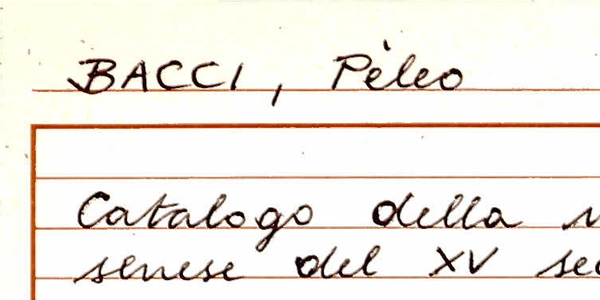 BACCI, Pèleo
Catalogo della
senese del XV